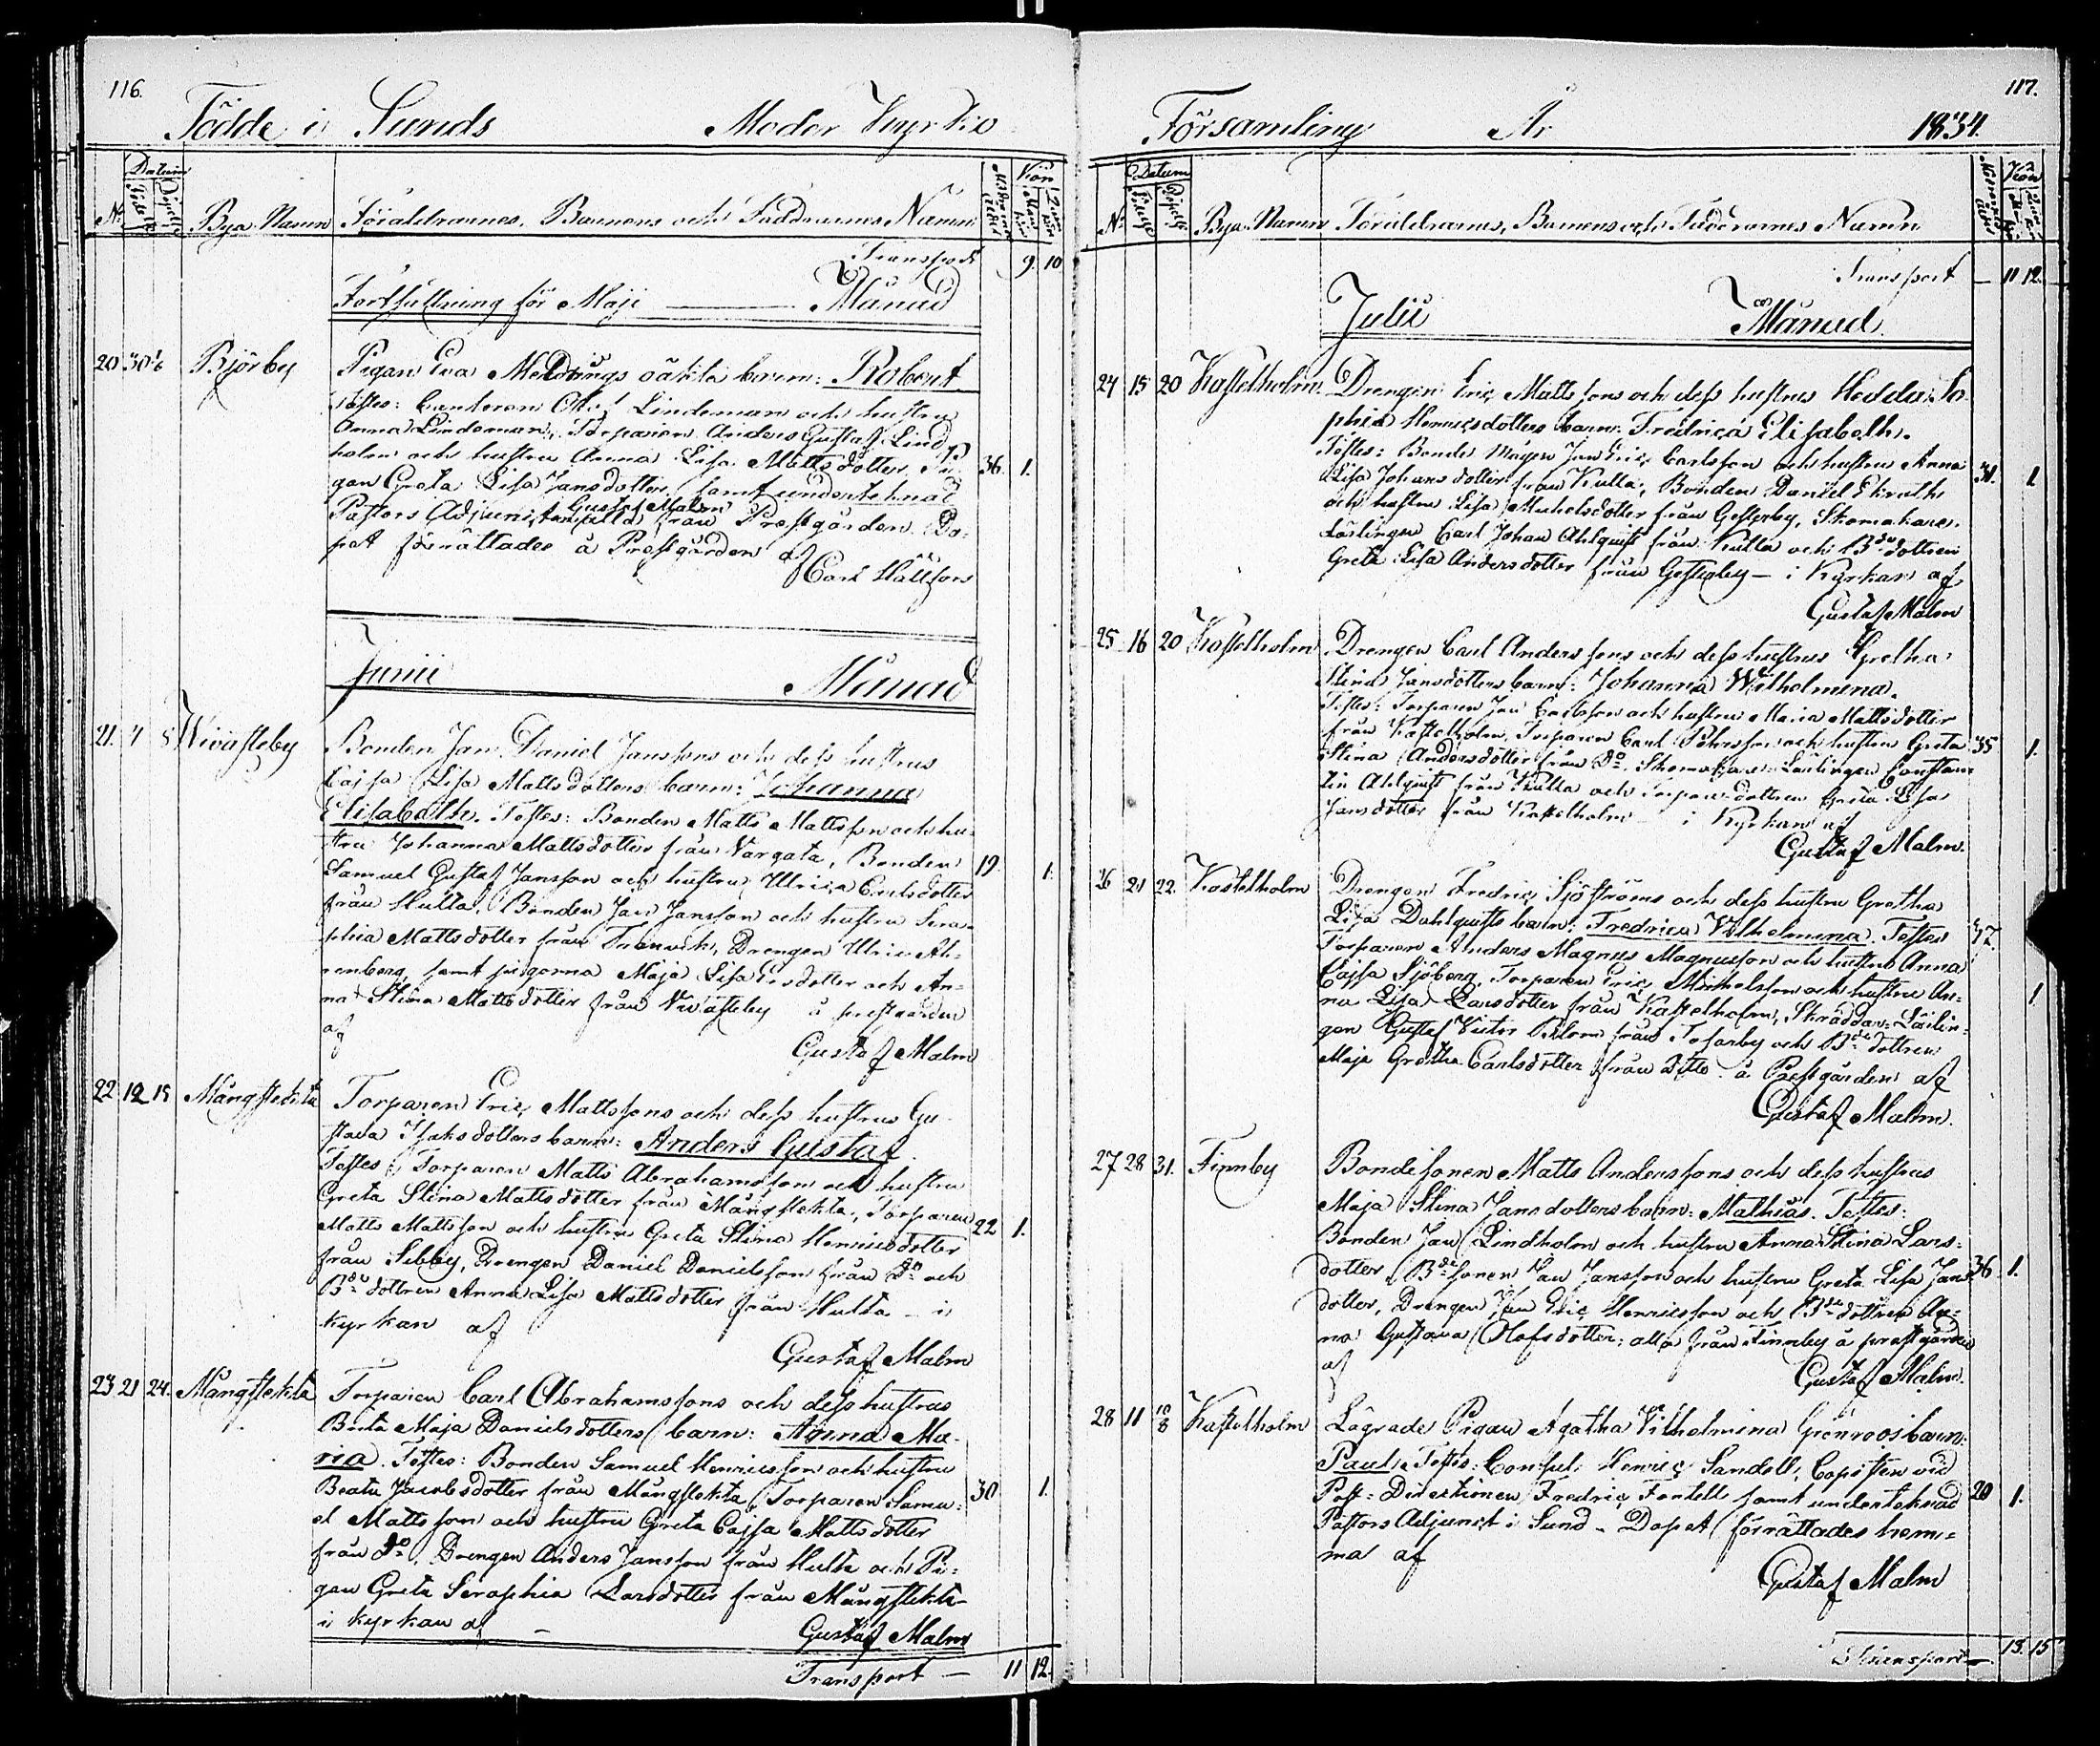 116.
Födde i Sunds Moder Kyrko
No Datum Bya Namn Föräldrarnes, Barnens och Faddrarnes Namn Kön
Transport 9. 10
Fortsättning för Maji Månad
20 30 1/6 Björby Pigan Eva Medbergs oäkta barn: Robert
Testes: Cantoren Lindeman och hustru
Anna Lindeman, Torparen Anders Gustaf Lind
holm och hustru Anna Lisa Mattsdotter, Pi
gan Greta Lisa Jansdotter samt undertecknad 36. 1.
Pastors Adjunct Gustaf Malm från Prestgården. Do-
pet förrättades å Prestgården af
Carl Hällfors
Junii Månad
21. 7 8 Wivasteby Bonden Jan Daniel Janssons och dess hustrus
Cajsa Lisa Mattsdotters barn: Johanna
Elisabeth. Testes: Bonden Matts Mattsson och hu-
stru Johanna Mattsdotter från Vargata, Bonden 19. 1.
Samuel Gustaf Jansson och hustru Ulrica Carlsdotter
från Hulta, Bonden Jan Jansson och hustru Sera-
phia Mattsdotter från Tranvik, Drengen Ulric Ah-
renberg, samt pigorna Maja Lisa Ersdotter och An-
na Stina Mattsdotter från Wivasteby å prestgården
af
Gustaf Malm
22 12 15 Mångstekta Torparen Eric Mattssons och dess hustrus Gu-
stava Isaksdotters barn: Anders Gustaf.
Testes: Torparen Matts Abrahamsson och hustru
Greta Stina Mattsdotter från Mångstekta, Torparen
Matts Mattsson och hustru Greta Stina Henricsdotter 22 1.
från Sibby, Drengen Daniel Danielsson från Do och
Bde dottren Anna Lisa Mattsdotter från Hulta – i
kyrkan af
Gustaf Malm
23 21 24. Mångstekta Torparen Carl Abrahamssons och dess hustrus
Brita Maja Danielsdotters barn: Anna Ma-
ria. Testes: Bonden Samuel Henricsson och hustru
Beata Jacobsdotter från Mångstekta, Torparen Samu- 30. 1.
el Mattsson och hustru Greta Cajsa Mattsdotter
från Do, Drengen Anders Jansson från Hulta och Pi-
gan Greta Seraphia Larsdotter från Mångstekta
i kyrkan af –
Gustaf Malm
Transport – 11 12.
117.
Församling År 1834.
No Datum Bya Namn Föräldrarnes, Barnens och Faddrarnes Namn Kön
Transport – 11 12.
Julii Månad
24 15 20 Kastelholm Drengen Eric Mattssons och dess hustrus Hedda So-
phia Henricsdotters barn: Fredrica Elisabeth.
Testes: Bonde Mågen Jan Eric Carlsson och hustru Anna
Lisa Johansdotter från Kulla, Bonden Daniel Ekroth 31. 1
och hustru Lisa Michelsdotter från Gesterby, Skomakare-
Lärlingen Carl Johan Ahlquist från Kulla och Bde dottren
Greta Lisa Andersdotter från Gesterby – i Kyrkan af
Gustaf Malm
25 16 20 Kastelholm Drengen Carl Anderssons och dess hustrus Gretha
Stina Jansdotters barn: Johanna Wilhelmina.
Testes: Torparen Jan Carlsson och hustru Maria Mattsdotter
från Kastelholm, Torparen Carl Pehrsson och hustru Greta 35 1.
Stina Andersdotter från Do. Skomakare-Lärlingen Constan-
tin Ahlquist från Kulla och Torparedottren Greta Lisa
Jansdotter från Kastelholm – i Kyrkan af
Gustaf Malm.
26 21 22. Kastelholm Drengen Fredric Sjöströms och dess hustru Gretha
Lisa Dahlquists barn: Fredrica Wilhelmina. Testes 37.
Torparen Anders Magnus Magnusson och hustru Anna
Cajsa Sjöberg, Torparen Eric Michelsson och hustru An-
na Lisa Larsdotter från Kastelholm, Skräddare-Lärlin- 1
gen Gustaf Victor Blom från Tosarby och Bde dottren
Maja Gretha Carlsdotter från Ditto å Prestgården af
Gustaf Malm.
27 28 31. Finnby Bondesonen Matts Anderssons och dess hustrus
Maja Stina Jansdotters barn: Mathias. Testes:
Bonden Jan Lindholm och hustru Anna Stina Lars-
dotter, Bde sonen Jan Jansson och hustru Greta Lisa Jans 36 1.
dotter, Drengen Jan Eric Henricsson och Bde dottren An-
na Gustava Olofsdotter, alla från Finnby å prestgården
af
Gustaf Malm.
28 11 10/8 Kastelholm Lägrade Pigan Agatha Wilhelmina Grönroos barn:
Paul. Testes: Consul: Henric Sandell, Copisten vid
Post-Directionen Fredric Fontell samt undertecknad 20 1.
Pastors Adjunct i Sund – Dopet förrättades hem-
ma af
Gustaf Malm
Transport – 13. 15